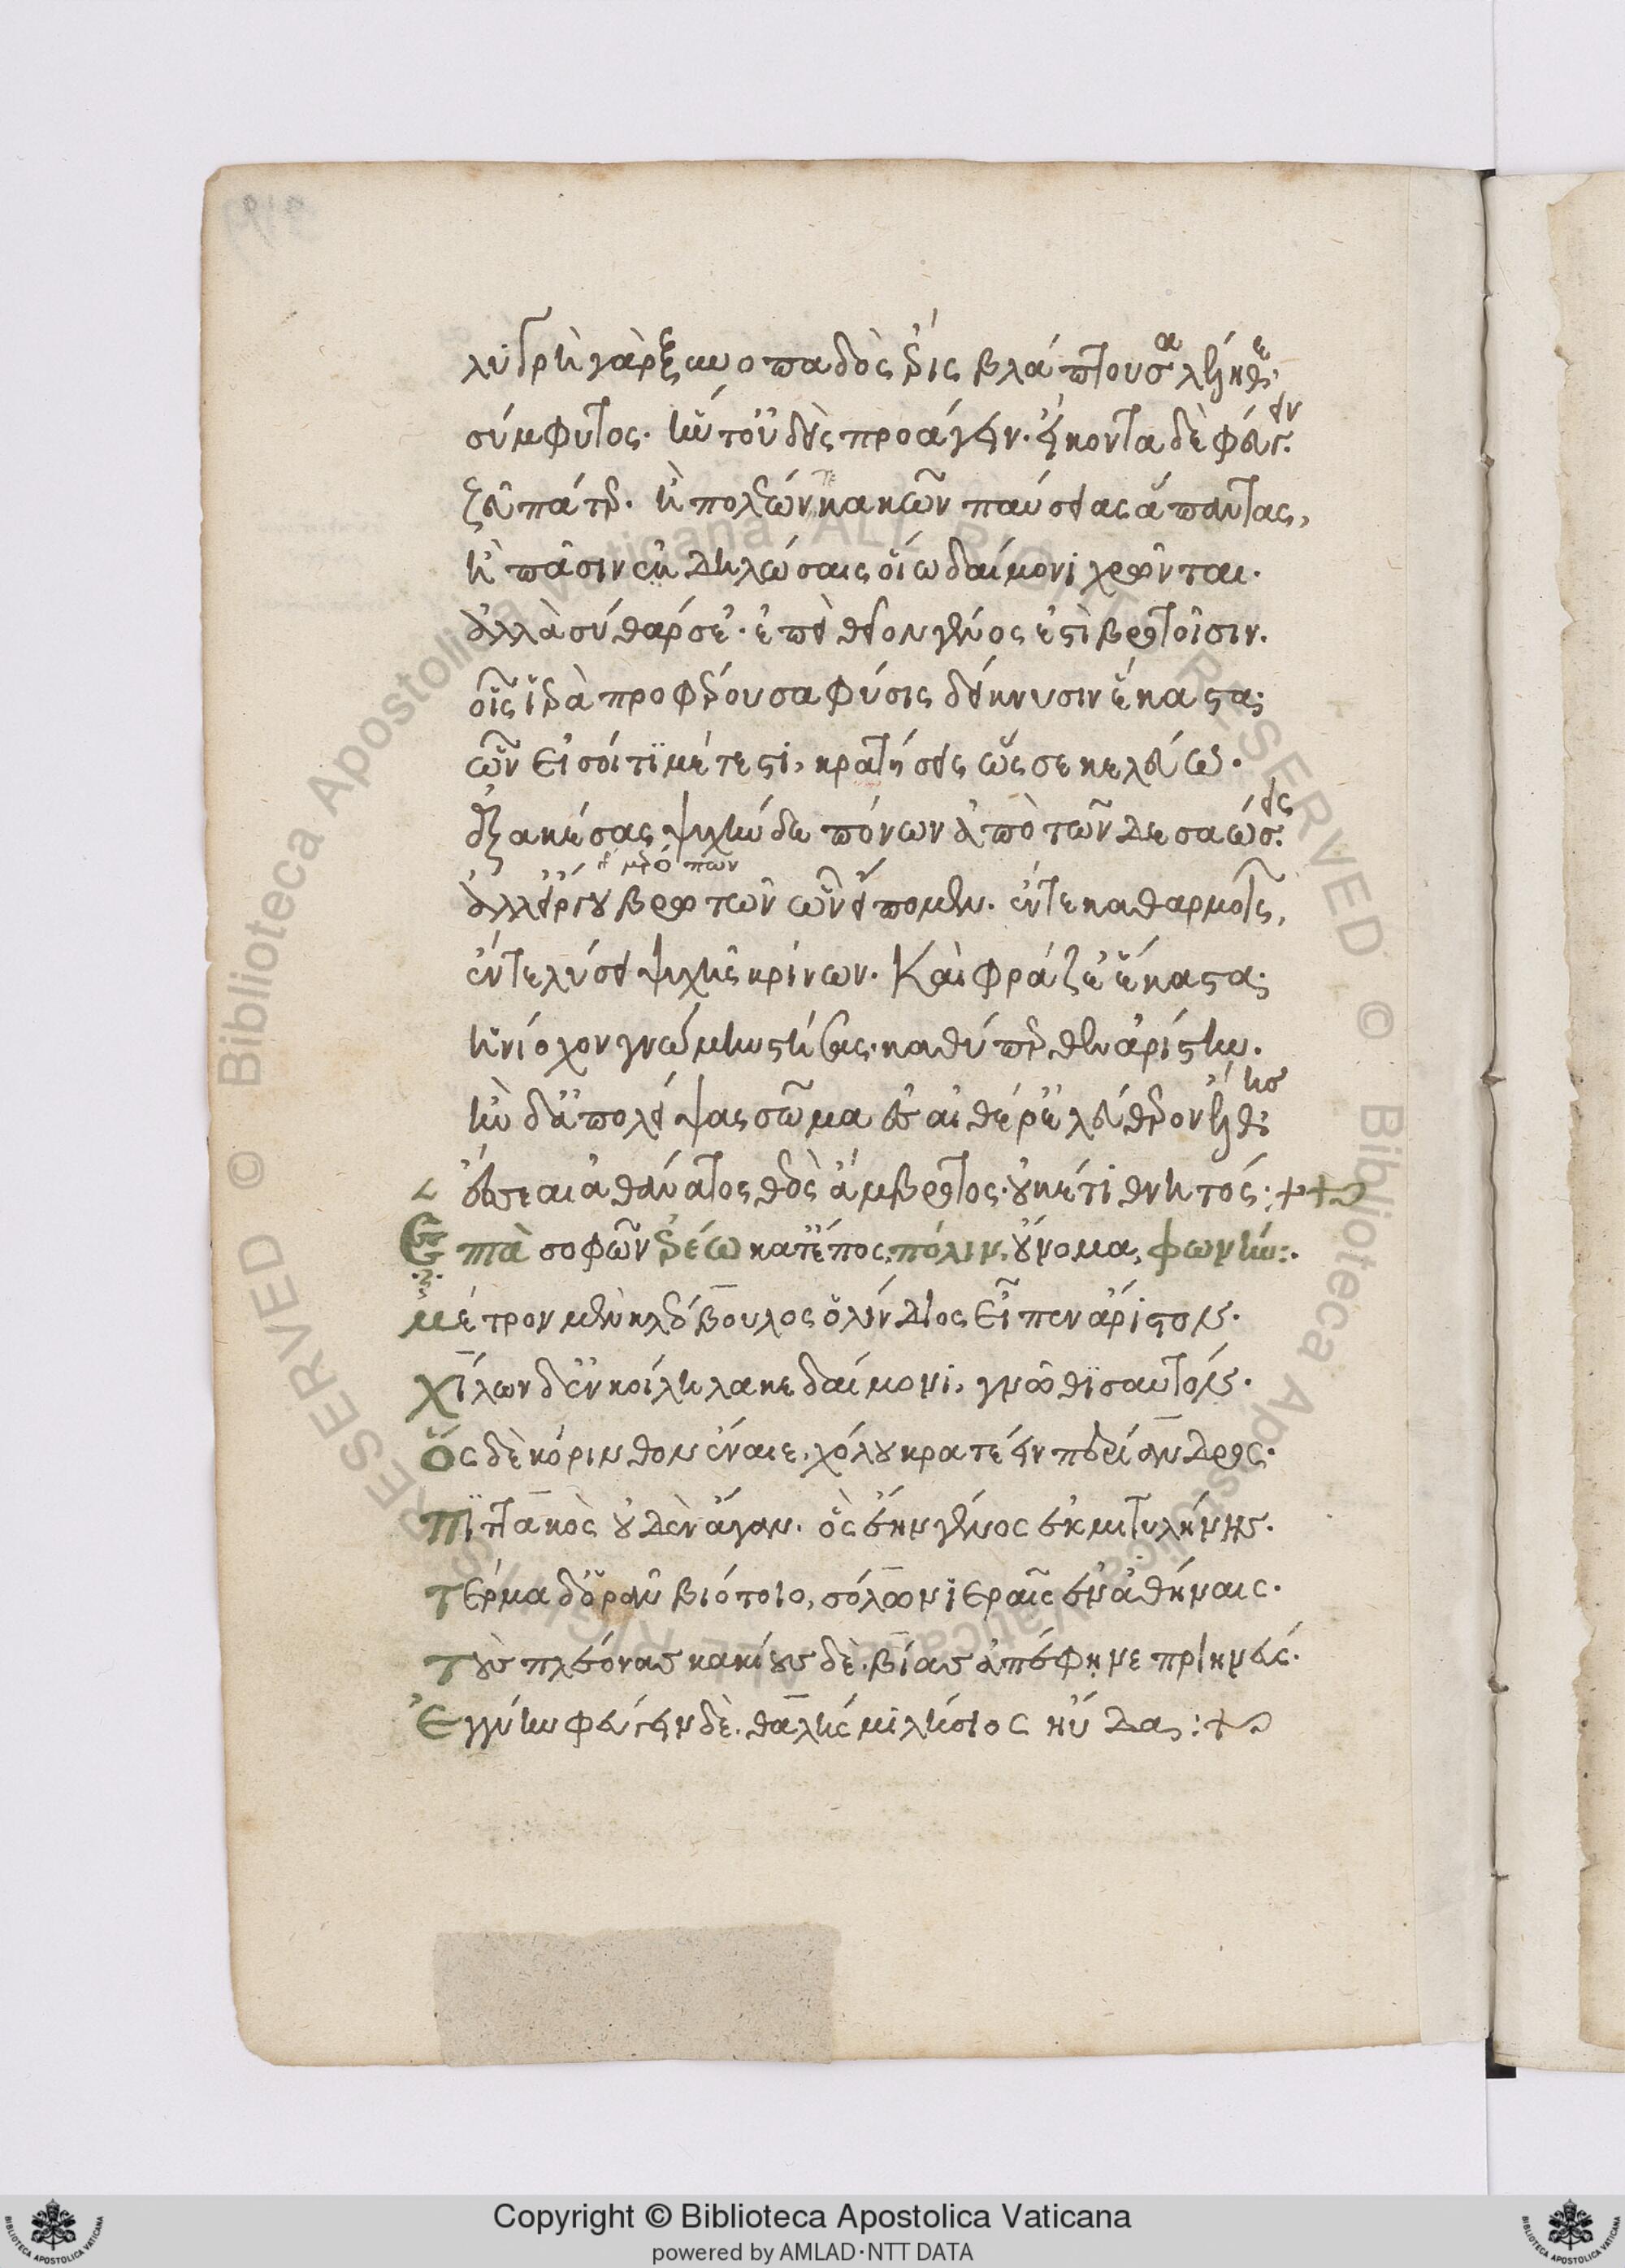 λυγρὴ γὰρ ξυνοπαδὸς ἔρις βλάπτουσα λέληθε·
σύμφυτος. ἣν οὐ δεῖς προάγειν. εἴκοντα δὲ φεύγειν.
ζεῦ πάτερ. ἢ πολλῶν κε κακῶν παύσειας ἅπαντας,
ἢ πᾶσιν δηλώσαις οἵω δαίμονι χρῶνται.
ἀλλὰ σύ θάρσει· ἐπεὶ θεῖον γένος ἐστὶ βροτοῖσιν.
οἷς ἱερὰ προφέρουσα φύσις δείκνυσιν ἕκαστα·
ὧν εἰ σοί τι μέτεστι, κρατήσεις ὧς σε κελεύω.
ἐξακέσας ψυχὴν δε πόνων ἀπὸ τῶνδε σαώσεις.
ἀλλ' εἴργου βρωτῶν ὧν εἴπομεν. ἔν τε καθαρμοῖς,
ἔν τε λύσει ψυχῆς κρίνων. Καὶ φράζε' ἕκαστα·
ἡνίοχον γνώμην στήσας καθύπερθεν ἀρίστην.
ἢν δ' ἀπολείψας σῶμα ἐς αἰθέρ' ἐλεύθερον ἔλθης·
ἔσσεαι ἀθάνατος θεὸς ἄμβροτος· οὐκέτι θνητός:
Ἑπτὰ σοφῶν ἐρέω κατ' ἔπος, πόλιν, οὔνομα, φωνήν:
μέτρον μὲν κλεόβουλος ὁ λίνδιος εἶπεν ἄριστον.
χίλων δ' ἐν κοίλη λακεδαίμονι, γνῶθι σαυτόν.
ὃς δὲ κόρινθον ἔναιε, χόλου κρατέειν περίανδρος.
πιττακὸς οὐδὲν ἄγαν. ὃς ἔην γένος ἐκ μιτυλήνης.
τέρμα δ' ὁρᾶν βιότοιο, σόλων ἱεραῖς ἐν ἀθήναις.
τοὺς πλέονας κακίους δὲ. βίας ἀπέφηνε πριηνεύς.
ἐγγύην φεύγειν δὲ. θαλῆς μιλήσιος ηὔδα: